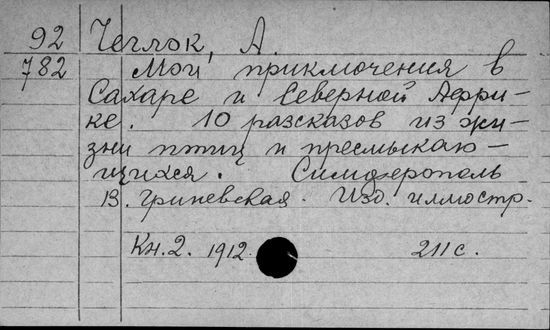 92 Чеглок, А.
782 Мои приключения в
Сахаре и Северной Афри-
ке. 10 разсказов из жи-
зни птиц и пресмыкаю-
щихся. Симферополь
В. Гриневская. Изд. иллюстр.
Кн.2. 1912. 211 с.